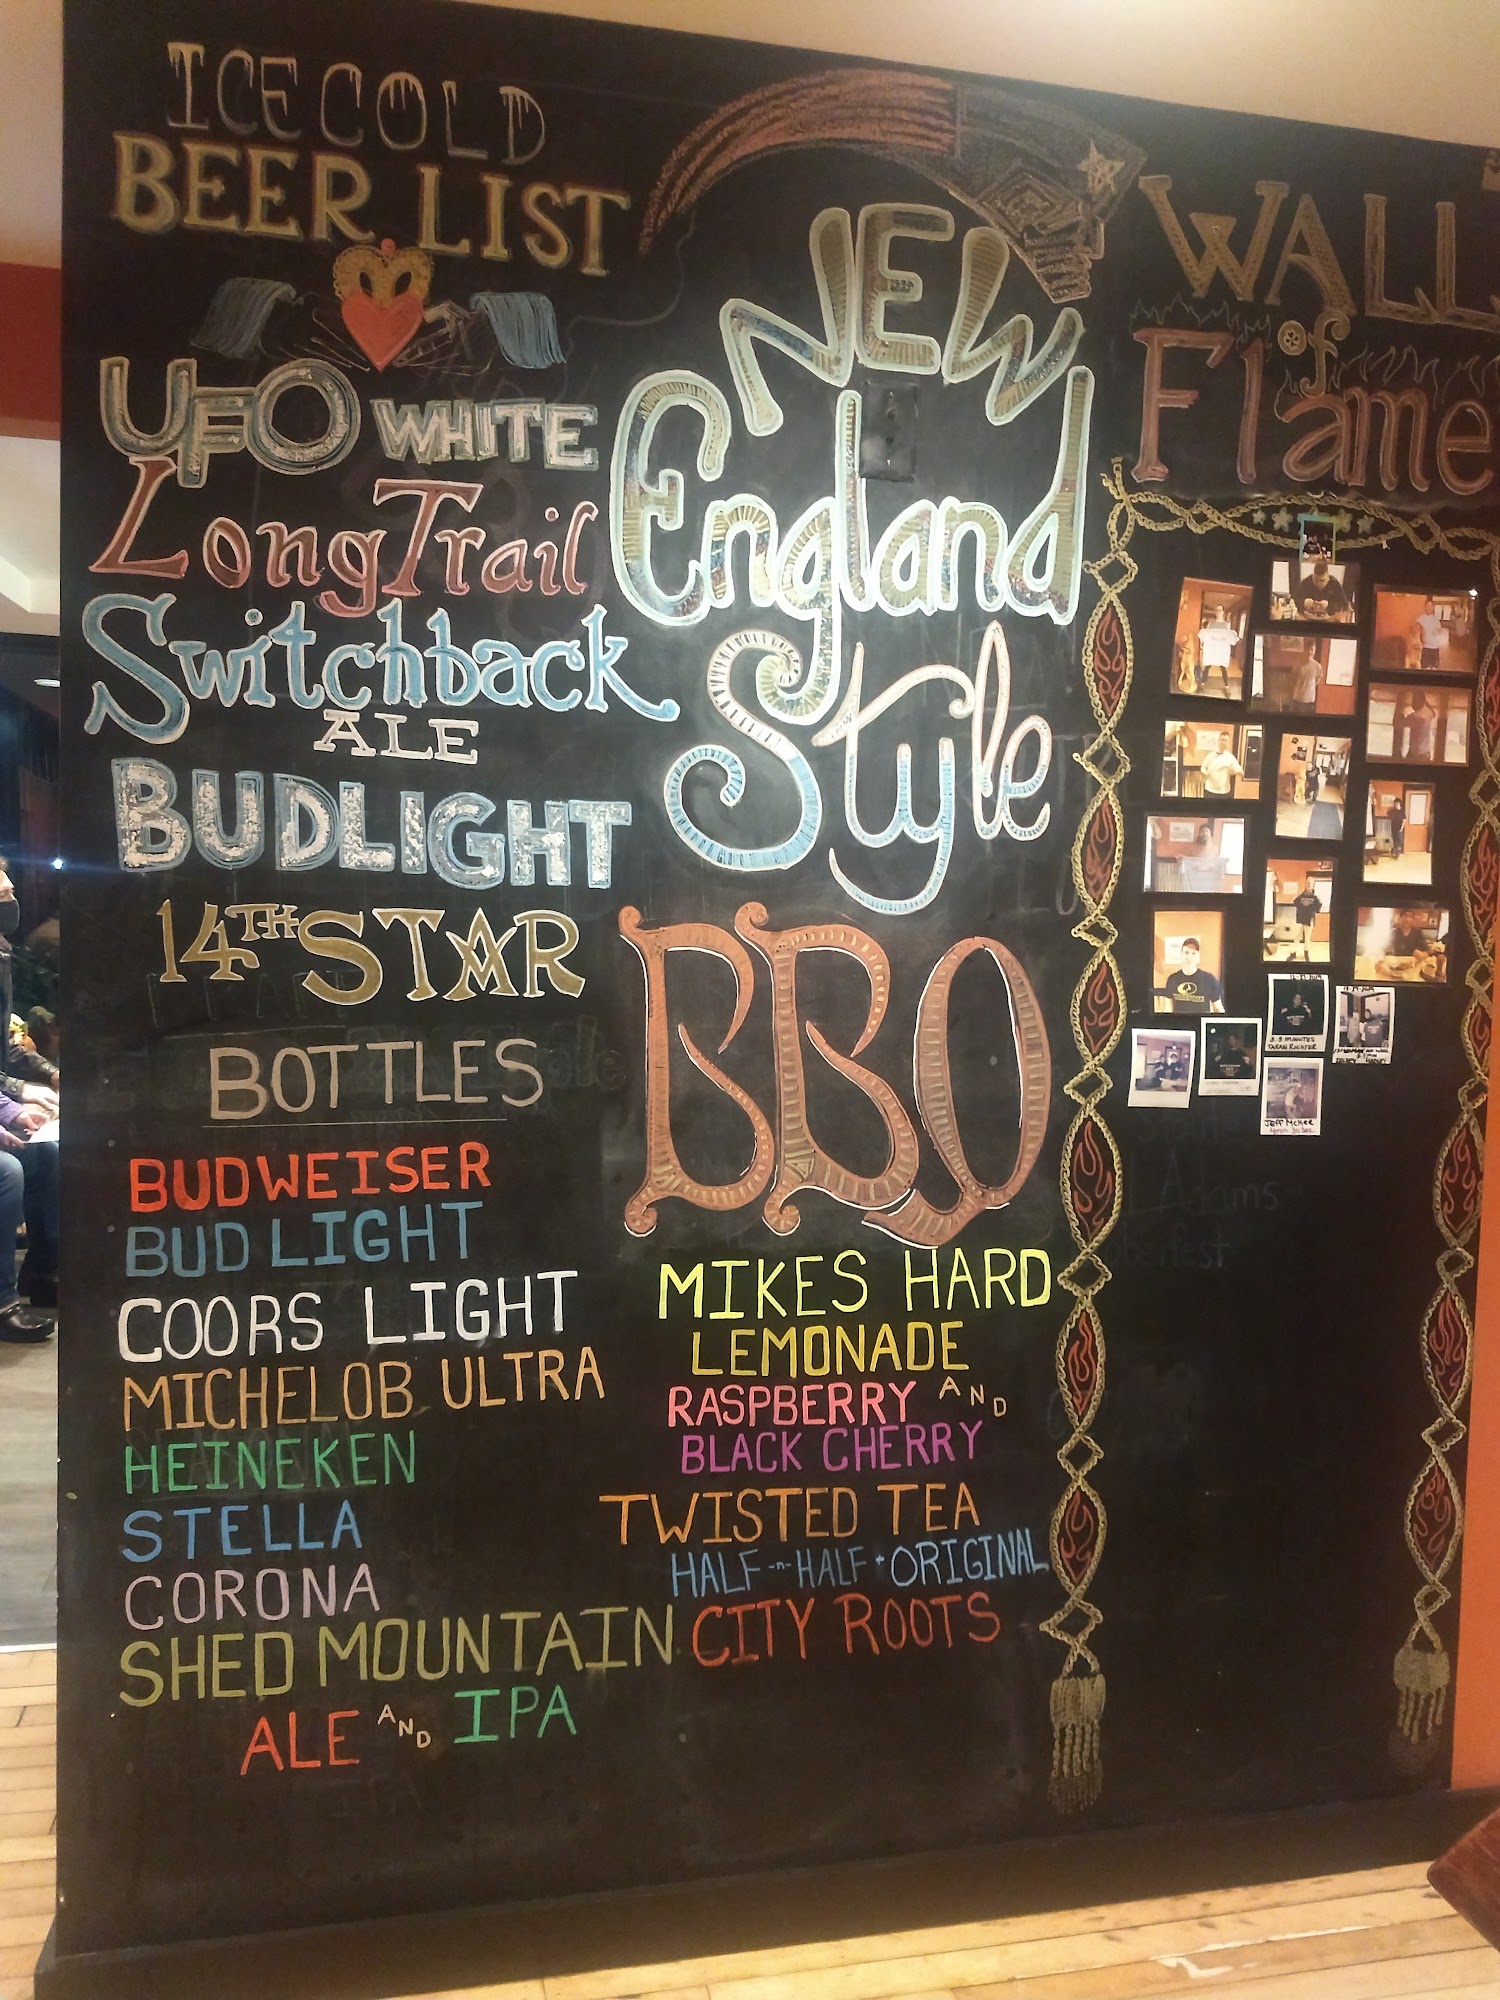 ICE COLD
BEER LIST
UFO WHITE
Long Trail
Switchback
ALE
BUDLIGHT
14TH STAR
BOTTLES
BUDWEISER
BUD LIGHT
COORS LIGHT
MICHELOB ULTRA
HEINEKEN
STELLA
CORONA
SHED MOUNTAIN
ALE AND IPA
NEW
England
Style
BBQ
MIKES HARD
LEMONADE
RASPBERRY AND
BLACK CHERRY
TWISTED TEA
HALF-n-HALF + ORIGINAL
CITY ROOTS
WALL
of
Flame
JEFF McKEE
Adams